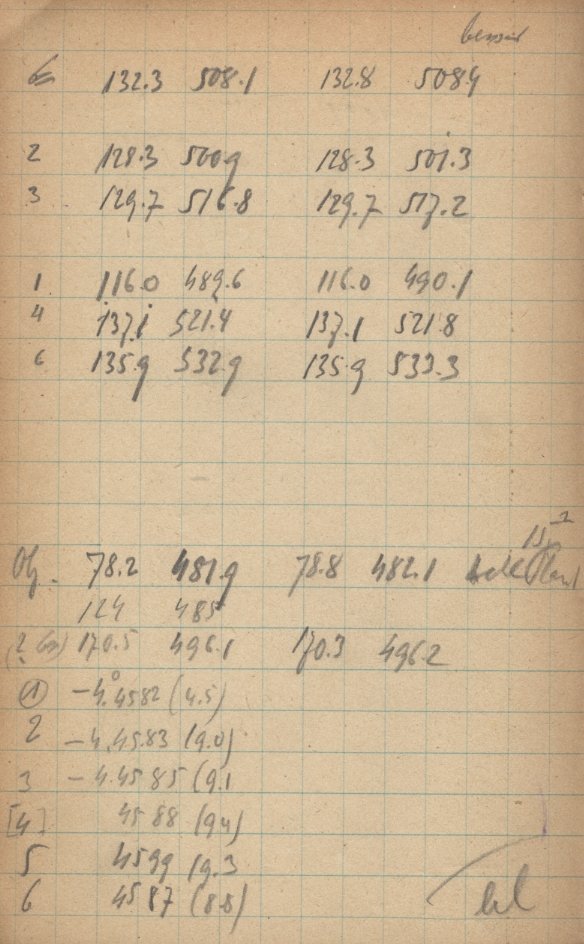 besser
132.3 508.1 132.8 508.4
2 128.3 500.9 128.3 501.3
3 129.7 516.8 129.7 517.2
1 116.0 489.6 116.0 490.1
4 137.1 521.4 137.1 521.8
6 135.9 532.9 135.9 533.3
Obj. 78.2 481.9 78.8 482.1
124 485
170.5 496.1 170.3 496.2
① -4.4582 (4.5)
2 -4.4583 (9.0)
3 -4.4585 (9.1
[4] 4588 (94)
5 4599 (9.3
6 4587 (8.8)